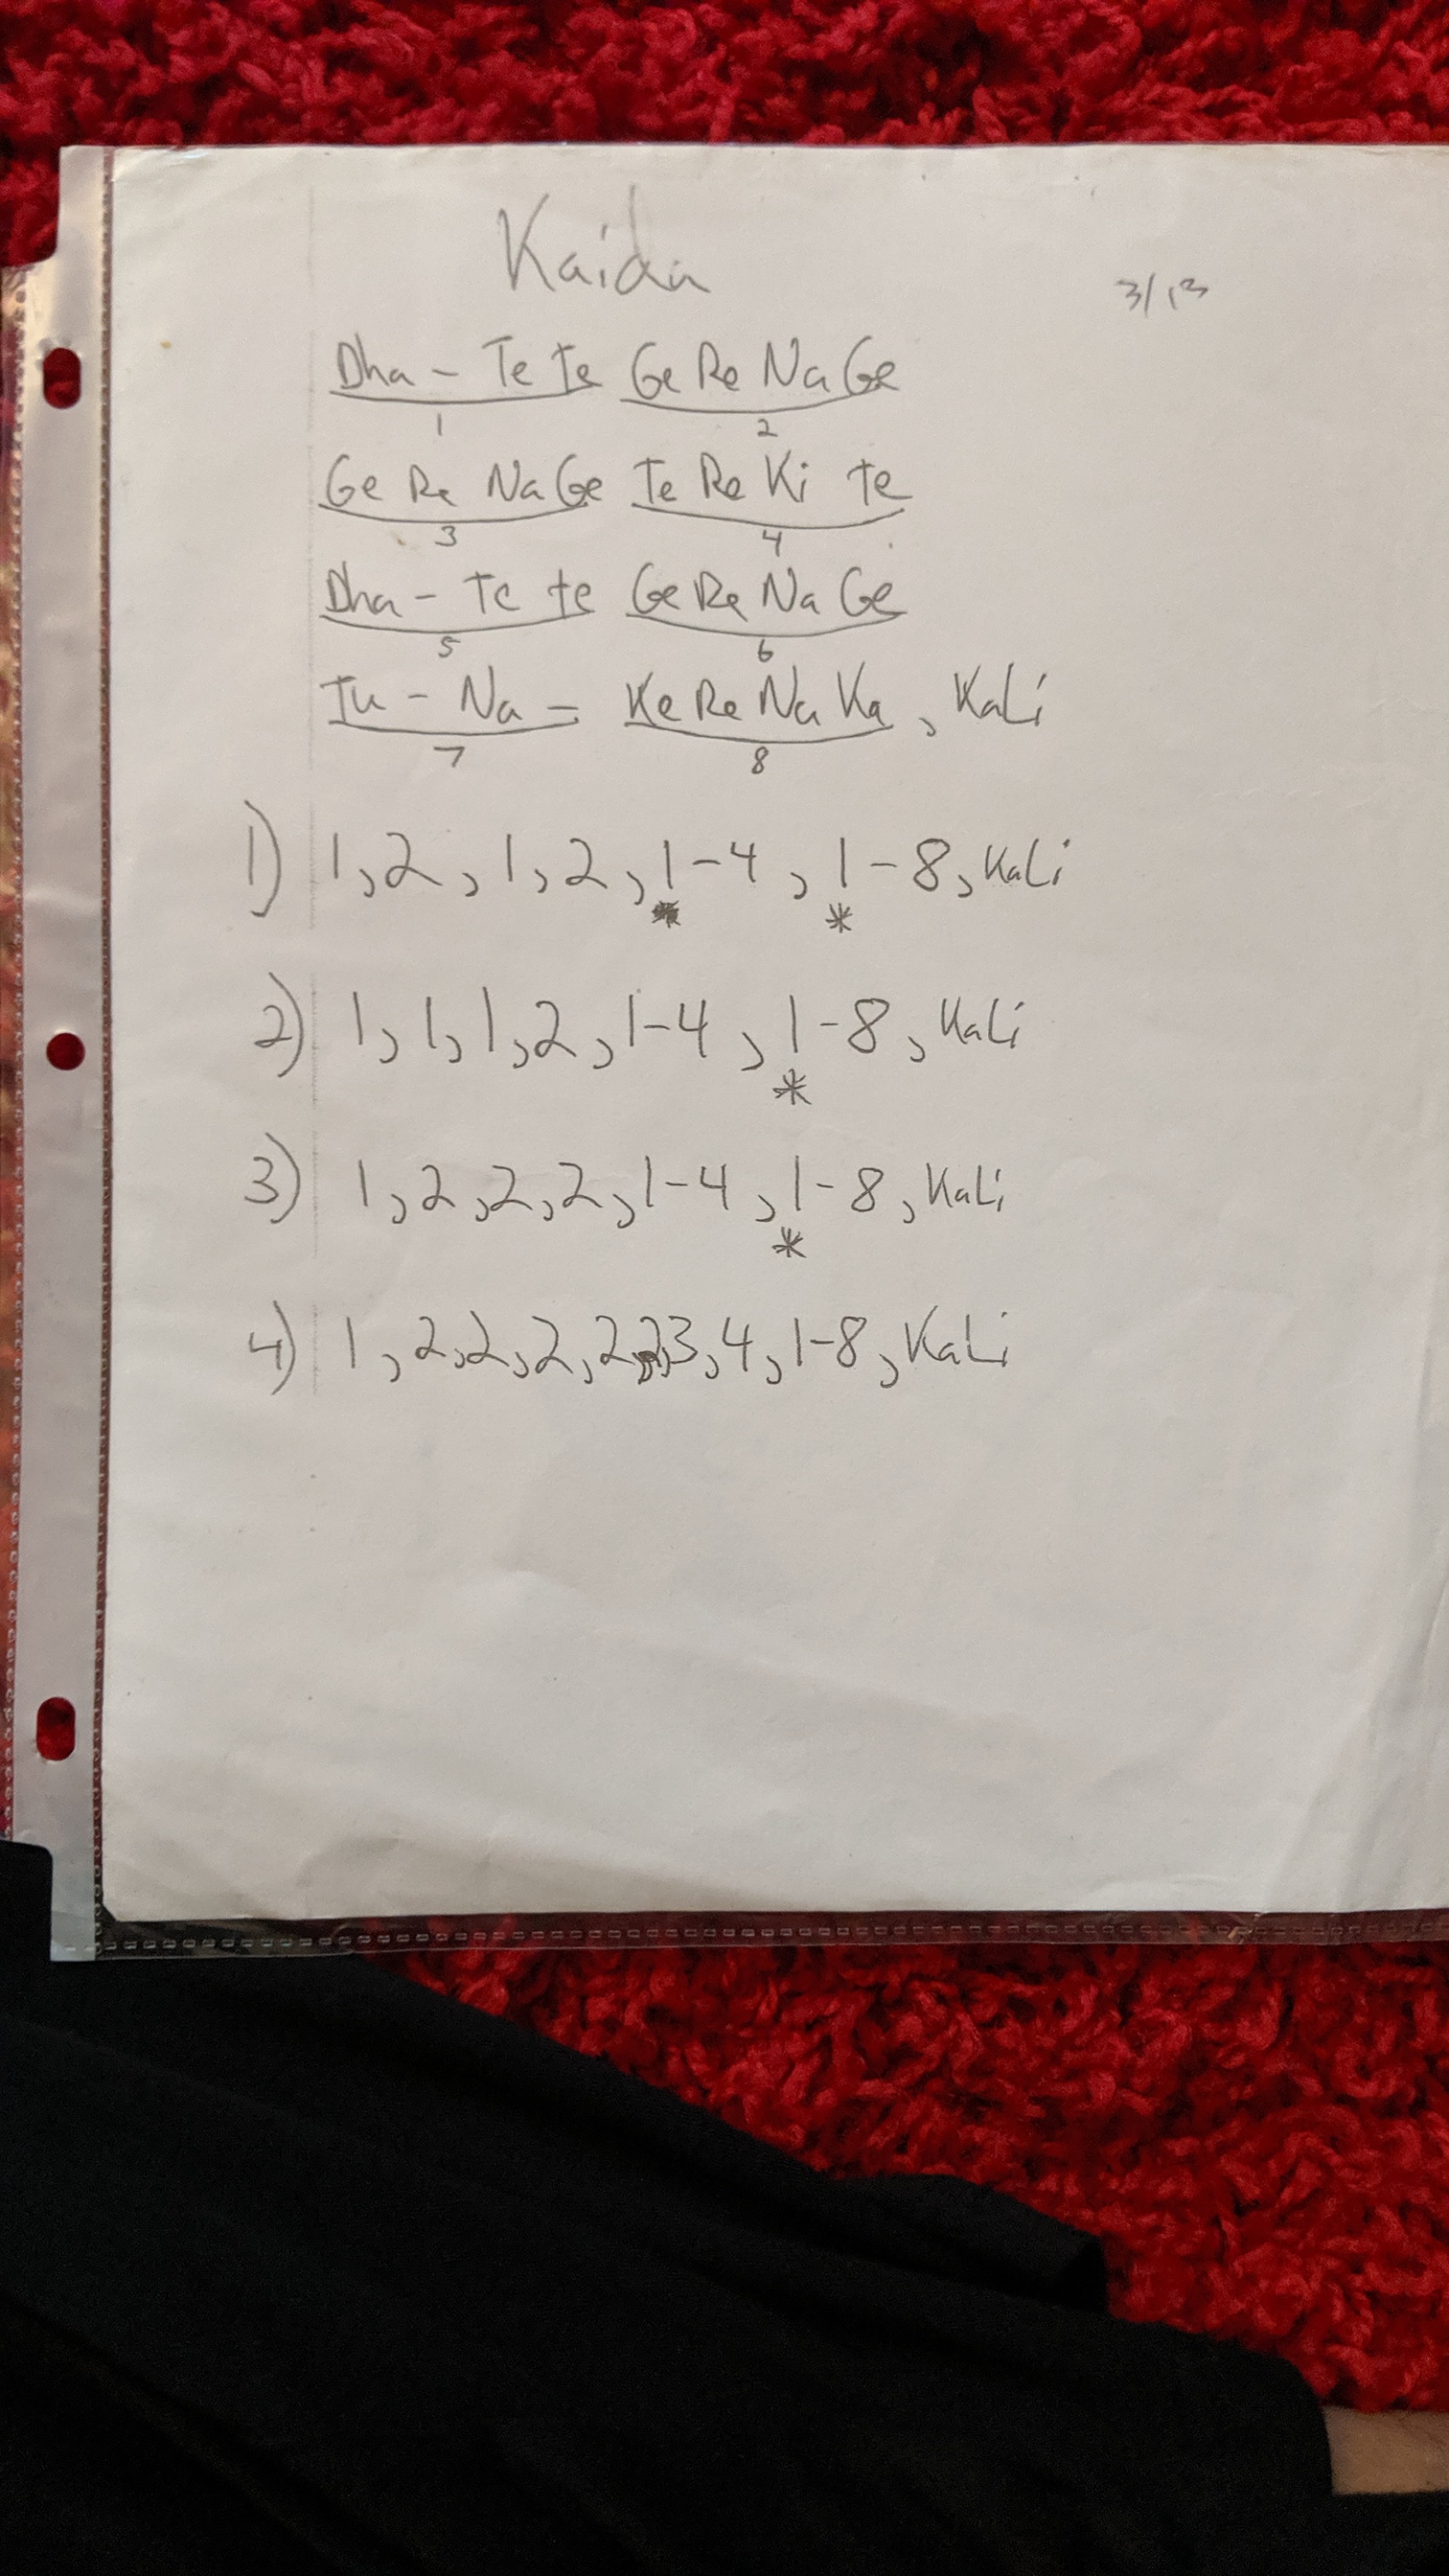 Kaida
3/13
Dha - Te Te Ge Re Na Ge
1 2
Ge Re Na Ge Te Re Ki Te
3 4
Dha - Te te Ge Re Na Ge
5 6
Tu - Na - Ke Re Na Ka, Kali
7 8
1) 1, 2, 1, 2, 1-4, 1-8, Kali
* *
2) 1, 1, 1, 2, 1-4, 1-8, Kali
*
3) 1, 2, 2, 2, 1-4, 1-8, Kali
*
4) 1, 2, 2, 2, 2, 2, 3, 4, 1-8, Kali